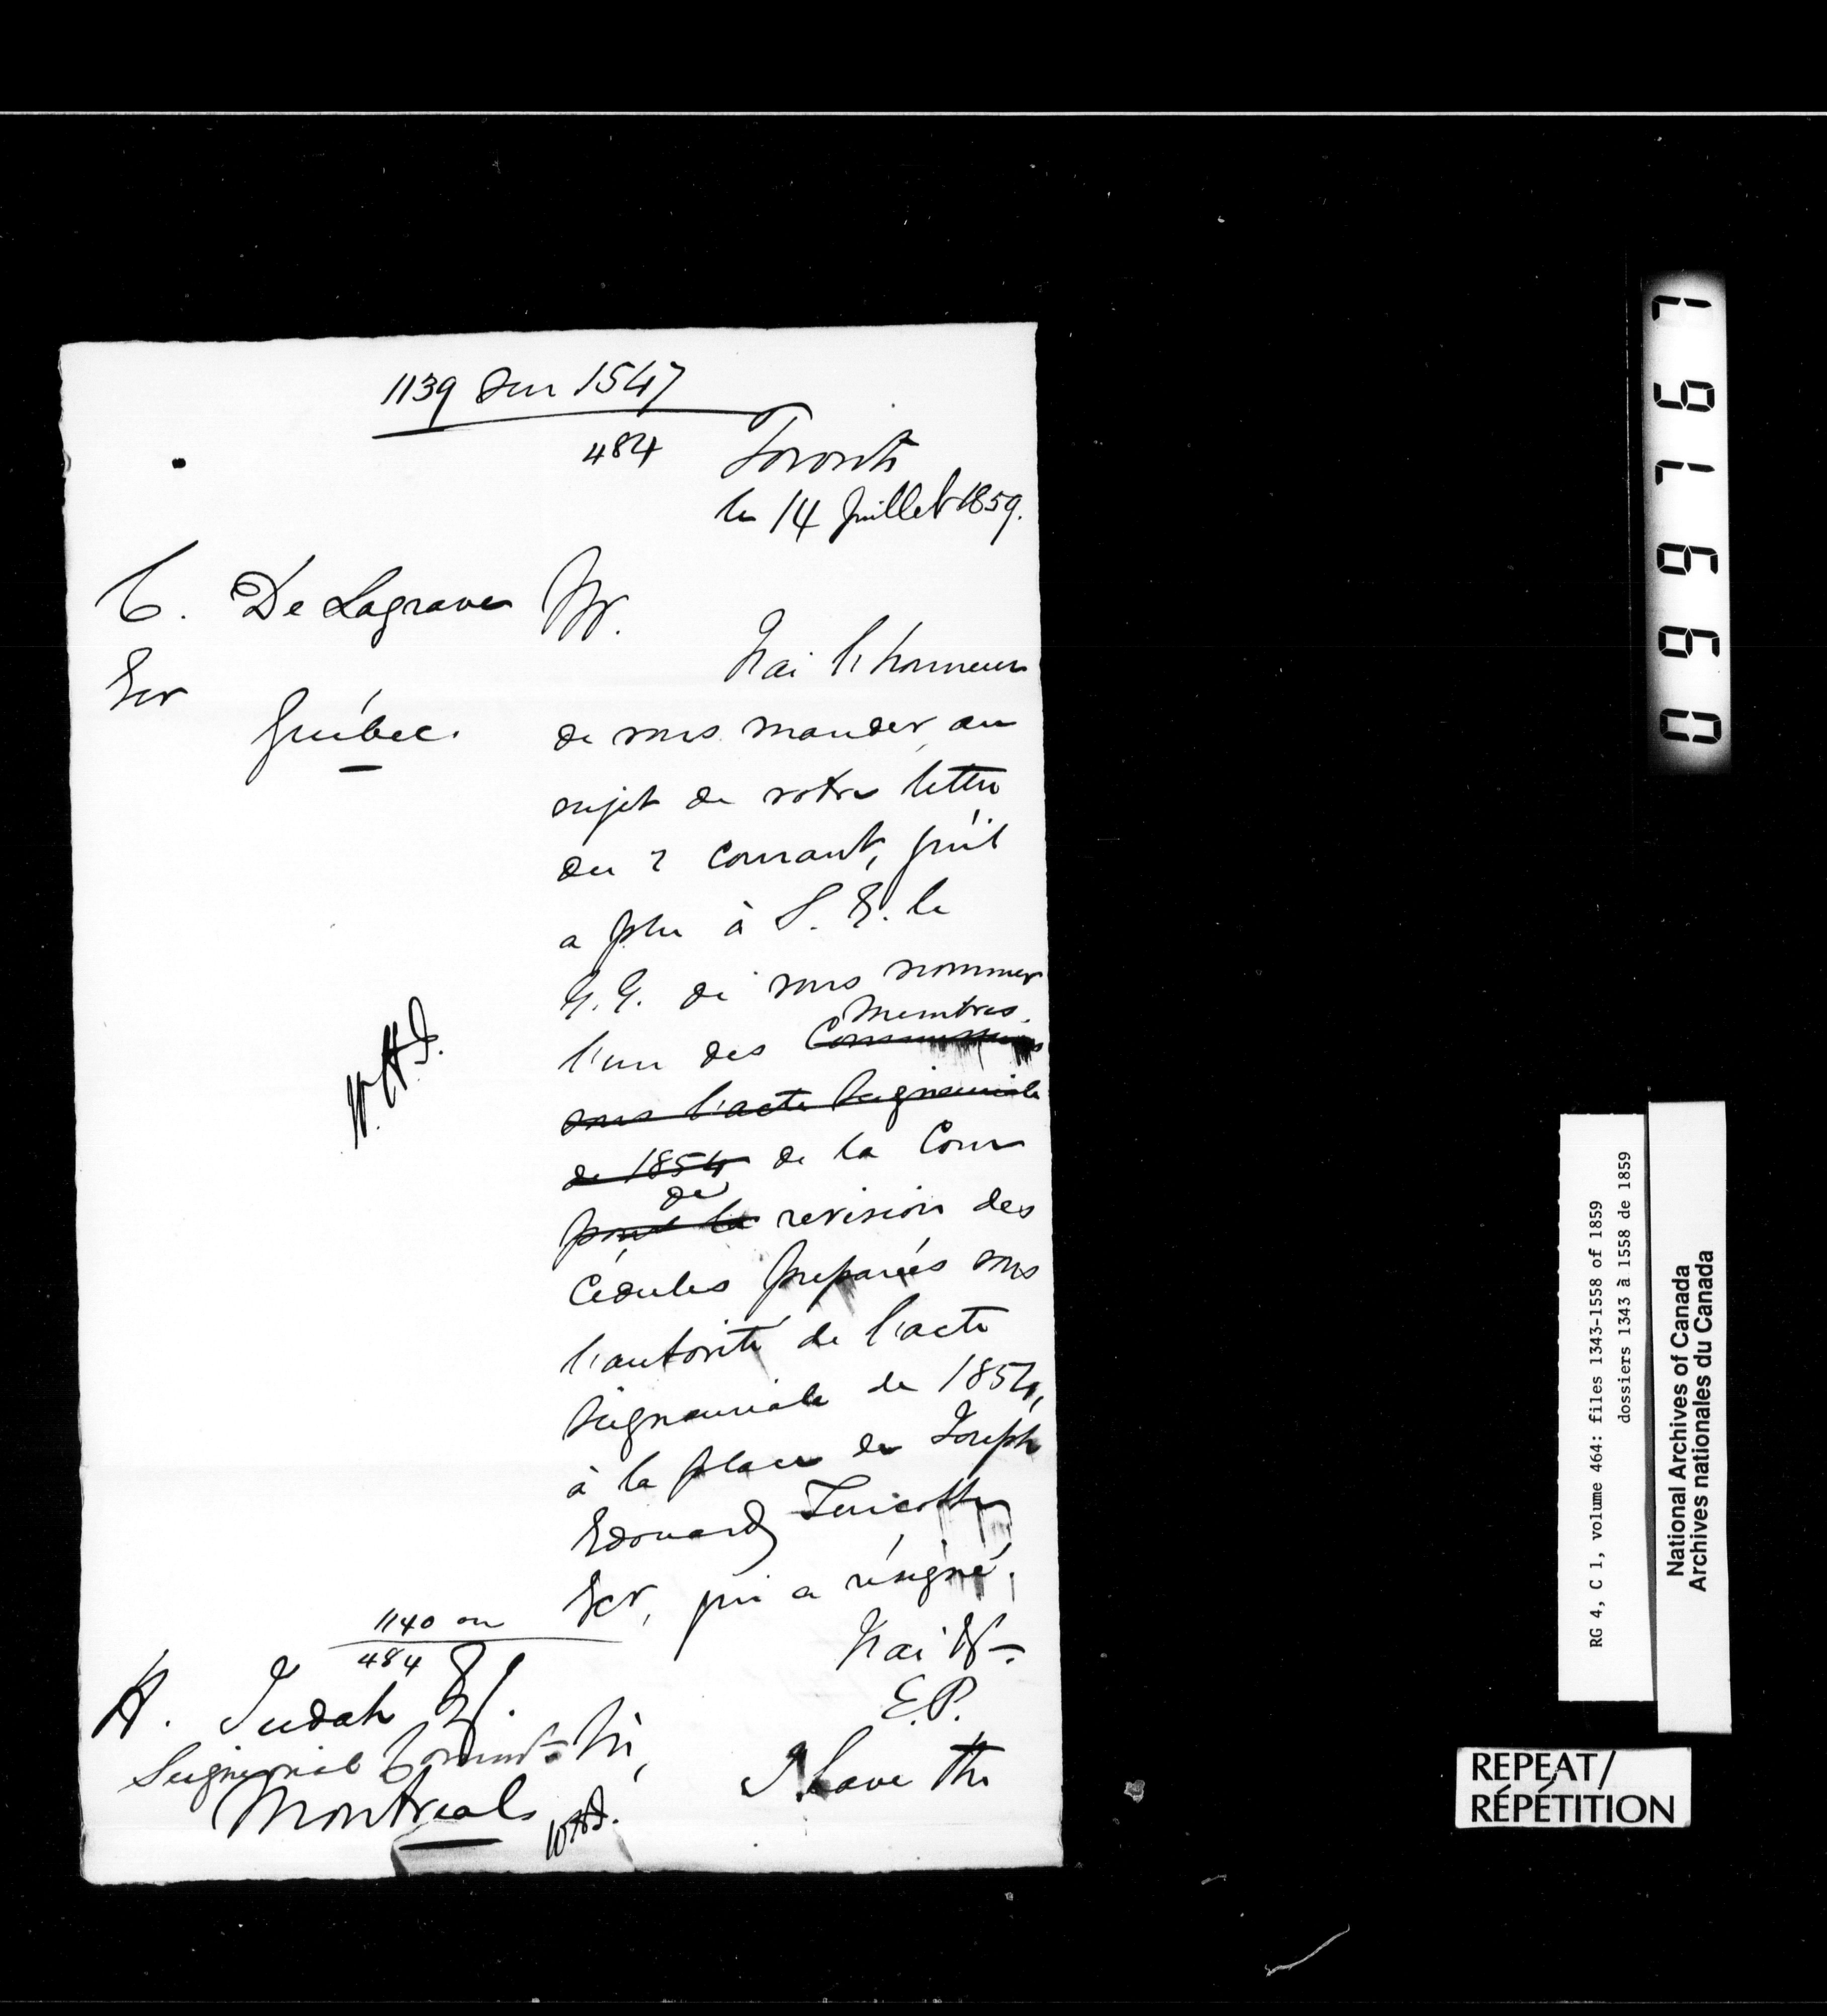 1139 sur 1547
484
Toronto
le 14 Juillet 1859.
C. De Lagrave
Ecr
Québec.
Mr.
J'ai l'honneur
de vous mander, au
sujet de votre lettre
du 2 courant, qu'il
a plu à S. E. le
G. G. de vous nommer
membres
l'un des Commissaires
sous l'acte Seigneuriale
de 1854 de la Cour
de
pour la revision des
Cédules preparées sous
l'autorité de l'acte
Seigneuriale de 1854,
à la place de Joseph
Edouard Turcotte
Ecr, qui a résigné.
J'ai &c
E.P.
W.H.J.
1140 on
484
H. Judah
Seignorial
Montreal
W.H.J.
Sir,
I have the
096167
RG 4, C 1, volume 464: files 1343-1558 of 1859
dossiers 1343 à 1558 de 1859
National Archives of Canada
Archives nationales du Canada
REPEAT/
RÉPÉTITION